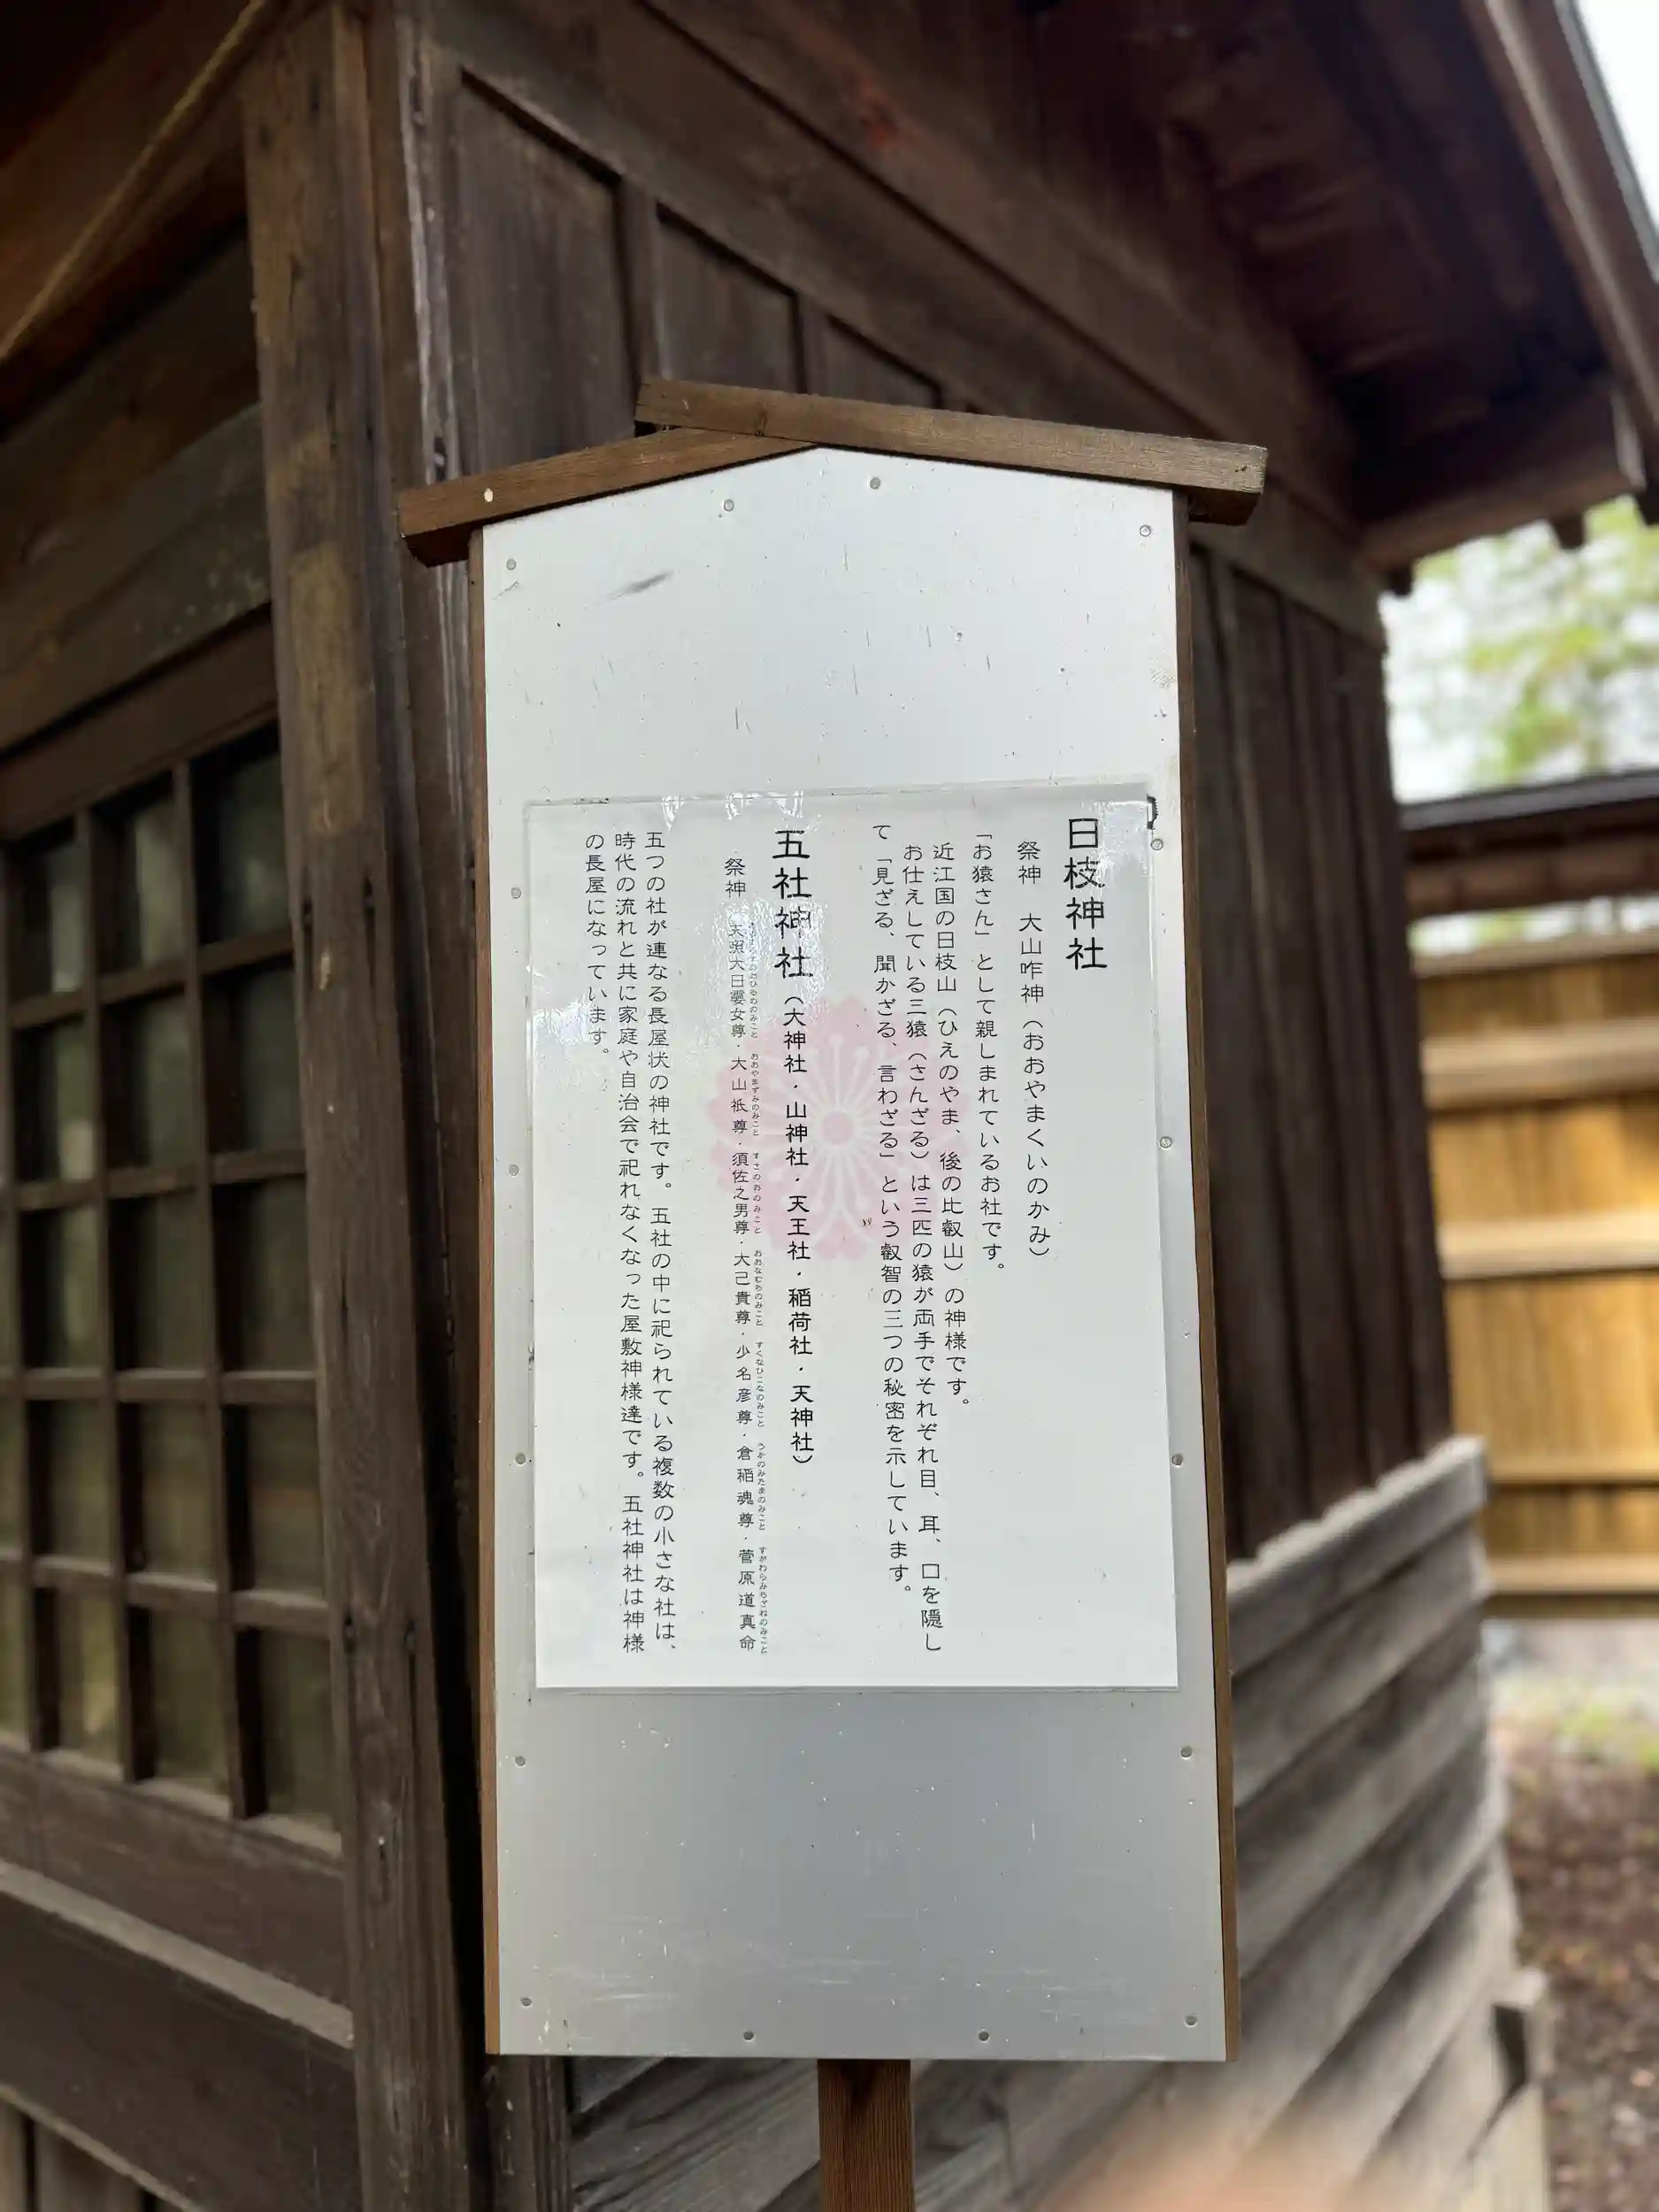 日枝神社
祭神 大山咋神（おおやまくいのかみ）
「お猿さん」として親しまれているお社です。
近江国の日枝山（ひえのやま、後の比叡山）の神様です。
お仕えしている三猿（さんざる）は三匹の猿が両手でそれぞれ目、耳、口を隠し
て「見ざる、聞かざる、言わざる」という叡智の三つの秘密を示しています。
五社神社（大神社・山神社・天王社・稲荷社・天神社）
祭神 天照大日孁女尊・大山祇尊・須佐之男尊・大己貴尊・少名彦尊・倉稲魂尊・菅原道真命
おおやまずみのみこと すさのおのみこと おおなむちのみこと すくなひこなのみこと うかのみたまのみこと すがわらみちざねのみこと
五つの社が連なる長屋状の神社です。五社の中に祀られている複数の小さな社は、
時代の流れと共に家庭や自治会で祀れなくなった屋敷神様達です。五社神社は神様
の長屋になっています。